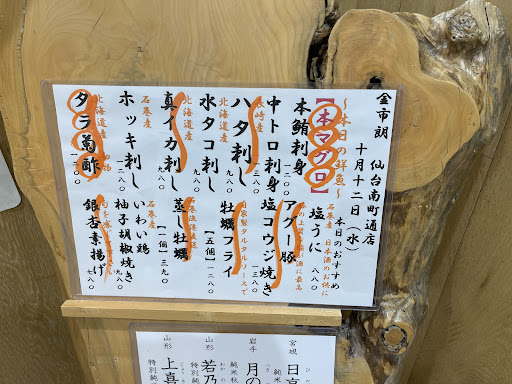 金市朗 仙台南町通店
十月十二日（水）
～本日の鮮魚～
【本マグロ】
本鮪刺身
中トロ刺身
長崎産
ハタ刺し
一三八〇
北海道産
水タコ刺し
九八〇
北海道産
真イカ刺し
九八〇
石巻産
ホッキ刺し
一二八〇
北海道産
タラ菊酢
本日のおすすめ
石巻産 日本酒のお供に
塩うに
八八〇
アグー豚
塩コウジ焼き
自家製タルタルソースで
牡蠣フライ
【五個】一二八〇
蒸し牡蠣
【一個】三九〇
石巻産
いわい鶏
柚子胡椒焼き
九八〇
銀杏素揚げ
宮城
純米
岩手
月の
純米
山形
若乃
山形
上喜
特別純